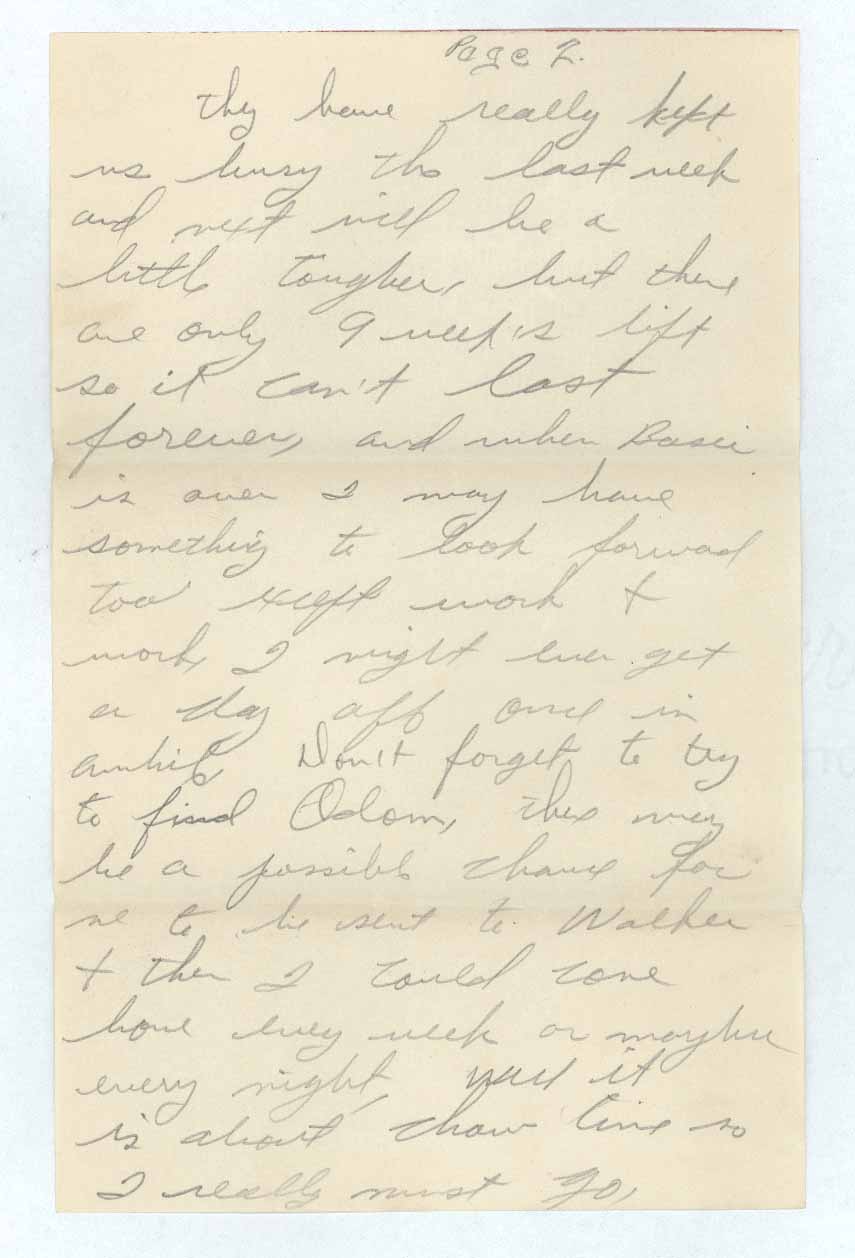 Page 2.
They have really kept
us busy the last week
and next will be a
little tougher, but there
are only 9 week's left
so it can't last
forever, and when Basic
is over I may have
something to look forward
too except work &
work, I might even get
a day off once in
awhile, Don't forget to try
to find Odom, there may
be a possible chance for
me to be sent to Walker
& then I could come
home every week or maybe
every night, well it
is about chow time so
I really must go,